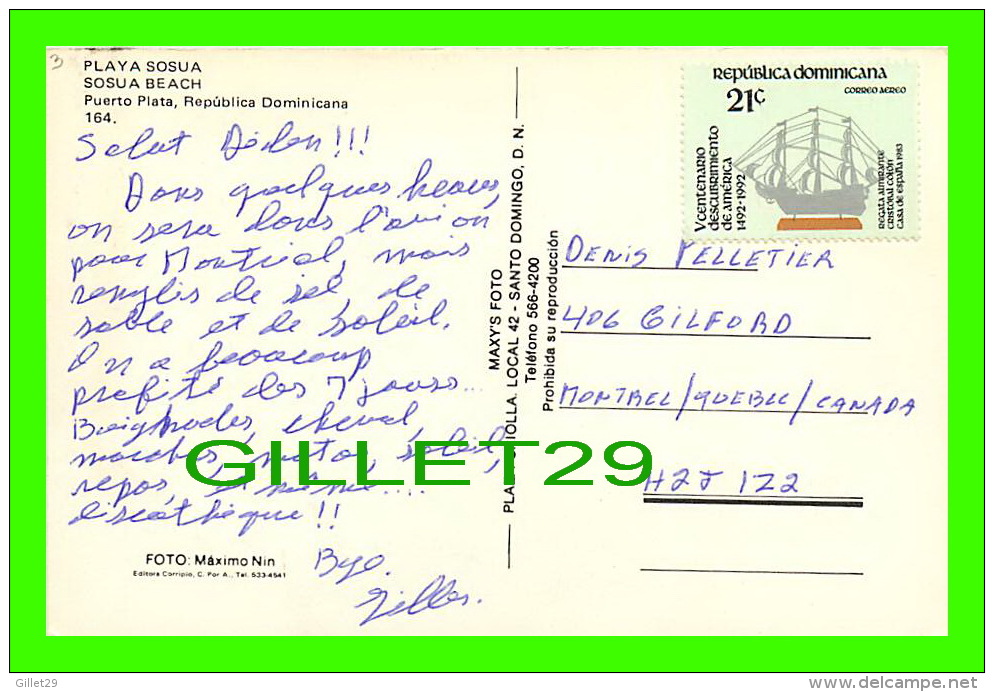 3
PLAYA SOSUA
SOSUA BEACH
Puerto Plata, República Dominicana
164.
Salut
Dans quelques heures,
on sera dans l'avion
pour Montréal, mais
remplis de sel, de
sable et de soleil.
On a beaucoup
profité des 7 jours...
Baignades, cheval,
marches, motos, soleil,
repos, et même....
discothèque!!
Bye.
Gilles.
FOTO: Máximo Nin
Editora Corripio, C. Por A., Tel. 533-4541
MAXY'S FOTO
LOCAL 42 - SANTO DOMINGO, D. N.
Teléfono 566-4200
Prohibida su reproducción
República dominicana
21¢
CORREO AEREO
V CENTENARIO
DESCUBRIMIENTO
DE AMÉRICA
1492-1992
REGATA ALMIRANTE
CRISTÓBAL COLÓN
CASA DE ESPAÑA 1983
DENIS PELLETIER
406 GILFORD
MONTREL/QUEBEC/CANADA
H2J 1Z2
GILLET29
Gillet29
delcampe.net